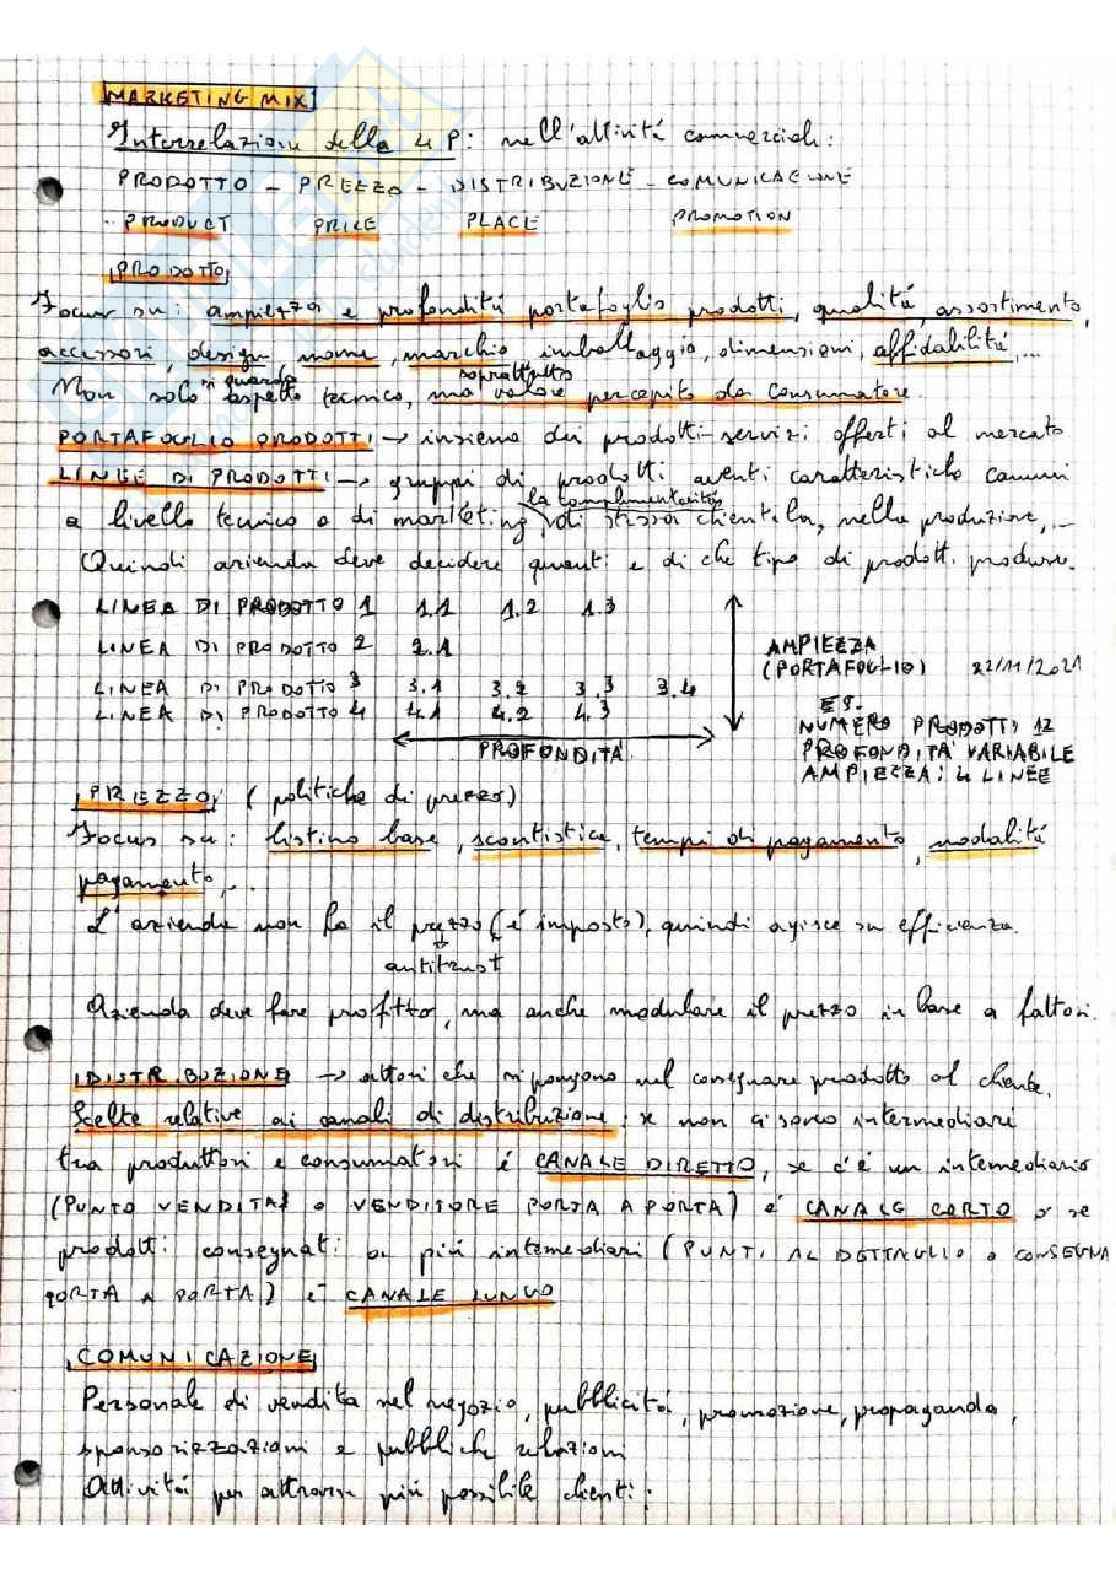 MARKETING MIX
Interrelazione delle 4 P: nell'attività commerciale:
PRODOTTO - PREZZO - DISTRIBUZIONE - COMUNICAZIONE
PRODUCT PRICE PLACE PROMOTION
PRODOTTO
Focus su: ampiezza e profondità portafoglio prodotti, qualità, assortimento,
accessori, design, nome, marchio, imballaggio, dimensioni, affidabilità,...
si guarda soprattutto
Non solo aspetto tecnico, ma valore percepito da consumatore.
PORTAFOGLIO PRODOTTI → insieme dei prodotti-servizi offerti al mercato
LINEE DI PRODOTTI → gruppi di prodotti aventi caratteristiche comuni
la complementarità
a livello tecnico o di marketing, di stessa clientela, nella produzione,...
Quindi azienda deve decidere quanti e di che tipo di prodotti produrre.
LINEA DI PRODOTTO 1 1.1 1.2 1.3
LINEA DI PRODOTTO 2 2.1
AMPIEZZA
(PORTAFOGLIO) 22/11/2021
LINEA DI PRODOTTO 3 3.1 3.2 3.3 3.4
LINEA DI PRODOTTO 4 4.1 4.2 4.3
ES.
NUMERO PRODOTTI 12
PROFONDITÀ
PROFONDITÀ VARIABILE
AMPIEZZA: 4 LINEE
PREZZO (politiche di prezzo)
Focus su: listino base, scontistica, tempi di pagamento, modalità
pagamento,..
L'azienda non fa il prezzo (è imposto), quindi agisce su efficienza.
antitrust
Azienda deve fare profitto, ma anche modulare il prezzo in base a fattori.
DISTRIBUZIONE → attori che si pongono nel consegnare prodotto al cliente.
Scelte relative ai canali di distribuzione: se non ci sono intermediari
tra produttori e consumatori è CANALE DIRETTO, se c'è un intermediario
(PUNTO VENDITA O VENDITORE PORTA A PORTA) è CANALE CORTO o se
prodotti consegnati a più intermediari (PUNTI AL DETTAGLIO O CONSEGNA
PORTA A PORTA) è CANALE LUNGO
COMUNICAZIONE
Personale di vendita nel negozio, pubblicità, promozione, propaganda,
sponsorizzazioni e pubbliche relazioni
Attività per attrarre più possibile clienti.